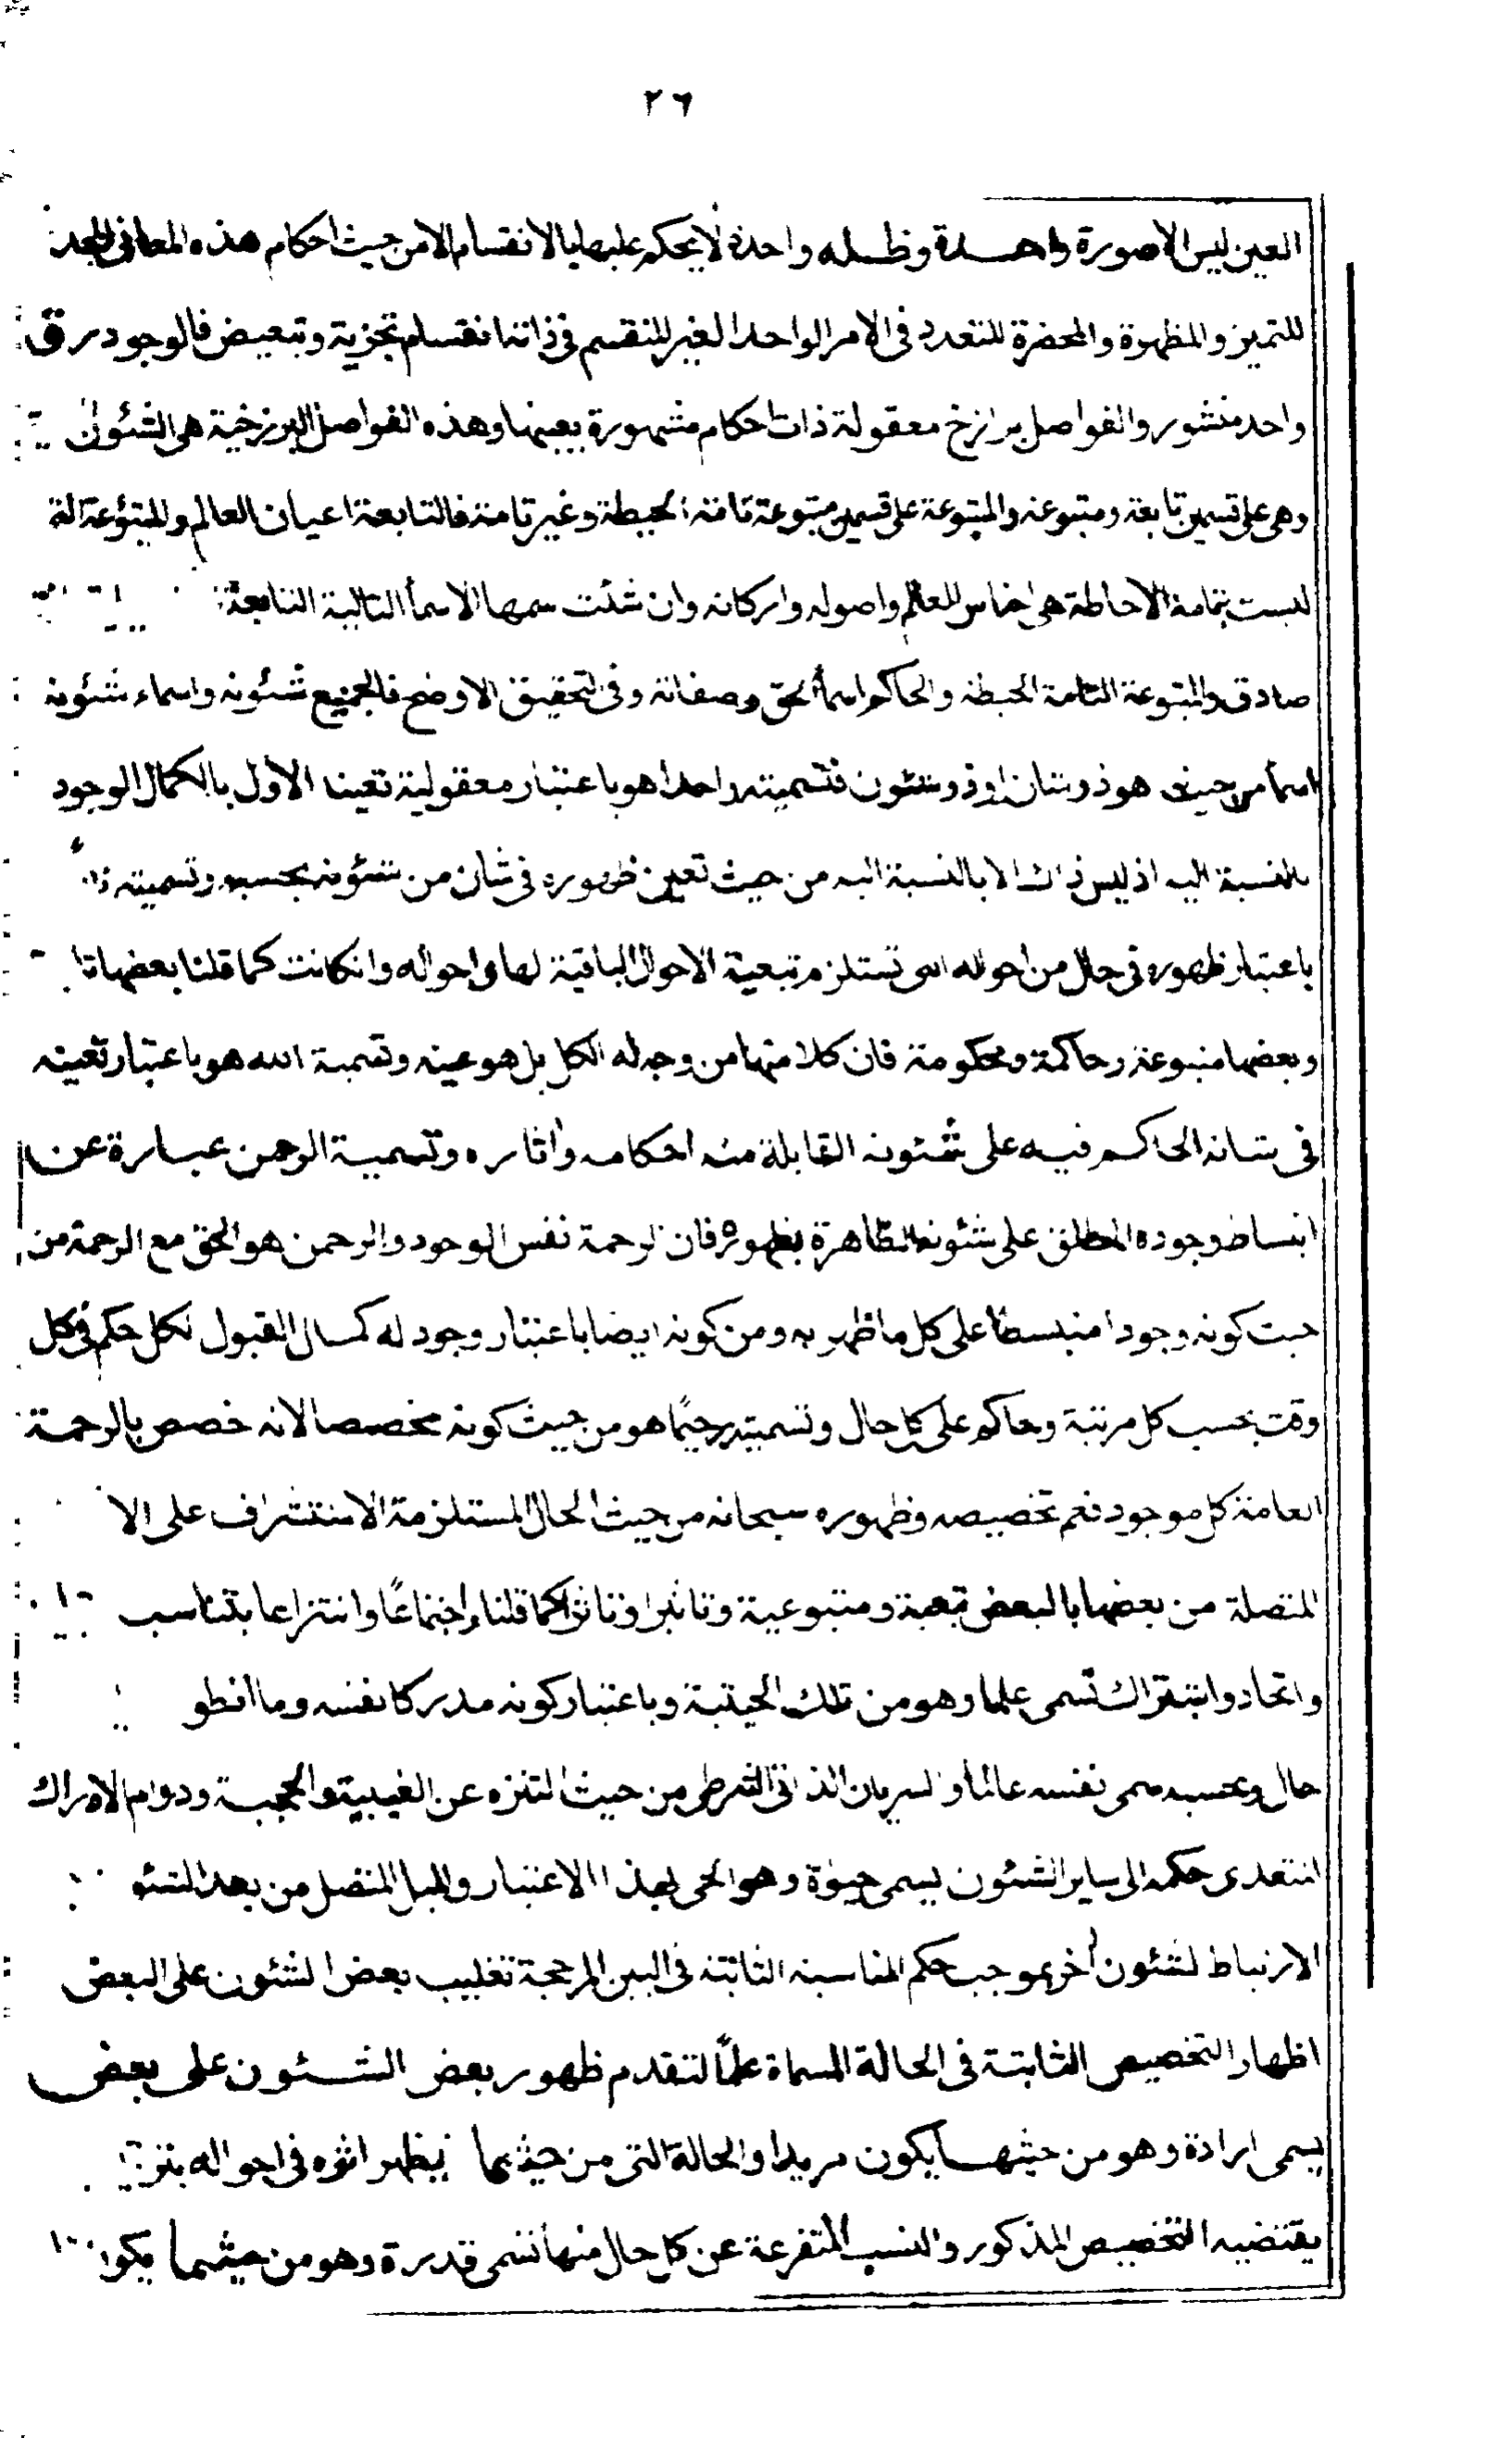 ٢٦
العين ليس الا صورة واحدة وظله واحدة لا يحكم عليها بالانقسام الا من حيث احكام هذه المعانى
للتميز والمظهرة والمحضرة للتعدد فى الامر الواحد الغير المنقسم فى ذاته انقسام تجزية وتبعيض فالوجود رق
واحد منشور والفواصل برازخ معقولة ذات احكام مشهورة بعينها وهذه الفواصل البرزخية هى الشئون
وهى على قسمين تابعة ومتبوعة والمتبوعة على قسمين متبوعة تامة الحيطة وغير تامة فالتابعة اعيان العالم والمتبوعة التى
ليست بتامة الاحاطة هى اجناس للعالم واصوله واركانه وان شئت سمها الاسمأ التالية التابعة
صادق والمتبوعة التامة الحيطة والحاكم اسمأ الحق وصفاته وفى التحقيق الاوضح فالجميع شئونه واسماء شئونه
اسمأ من حيث هو ذو شان او ذو شئون فتسميته واحدا هو باعتبار معقولية تعينا الاول بالكمال الوجود
بالنسبة اليه اذ ليس ذاك الا بالنسبة اليه من حيث تعين ظهوره فى شان من شئونه بحسبه وتسميته
باعتبار ظهوره فى حال من احواله التى تستلزم تبعية الاحوال الباقية لها واحواله وانكانت كما قلنا بعضها
وبعضها متبوعة وحاكمة ومحكومة فان كلا منها من وجه له الكل بل هو عينه وتسمية الله هو باعتبار تعينه
فى شانه الحاكم فيه على شئونه القابلة منه احكامه واثاره وتسمية الرحمن عبارة عن
انبساط وجوده المطلق على شئونه الظاهرة بظهوره فان الرحمة نفس الوجود والرحمن هو الحق مع الرحمة من
حيث كونه وجودا منبسطا على كل ما ظهر به ومن كونه ايضا باعتبار وجود له كمال القبول لكل حكم فى كل
وقت بحسب كل مرتبة وحاكم على كل حال وتسميته رحيما هو من حيث كونه مخصصا لانه خصص بالرحمة
العامة كل موجود فعم تخصيصه وظهوره سبحانه من حيث الحال المستلزمة الاستشراف على الا
المتصلة من بعضها بالبعض تبعية ومتبوعية وتاثيرا وتاثرا كما قلنا واجتماعًا وانتزاعا بتناسب
واتحاد واشتراك تسمى علما وهو من تلك الحيثية وباعتبار كونه مدركا نفسه وما انطو
حال وبحسبه سمى نفسه عالما والسريان الذاتى الشرطى من حيث التنزه عن الغيبية والحجبة ودوام الادراك
المتعدى حكمه الى ساير الشئون يسمى حيوة وهو الحى بهذا الاعتبار والميل المتصل من بعد الشئو
الارتباط لشئون اخر بموجب حكم المناسبة الثابتة فى البين المرجحة تغليب بعض الشئون على البعض
اظهار التخصيص الثابتة فى الحالة المسماة علمًا لتقدم ظهور بعض الشئون على بعض
يسمى ارادة وهو من حيثها يكون مريدا والحالة التى من حيثها يظهر اثره فى احواله
يقتضيه التخصيص المذكور والنسب المتفرعة عن كل حال منها تسمى قدرة وهو من حيثها يكون